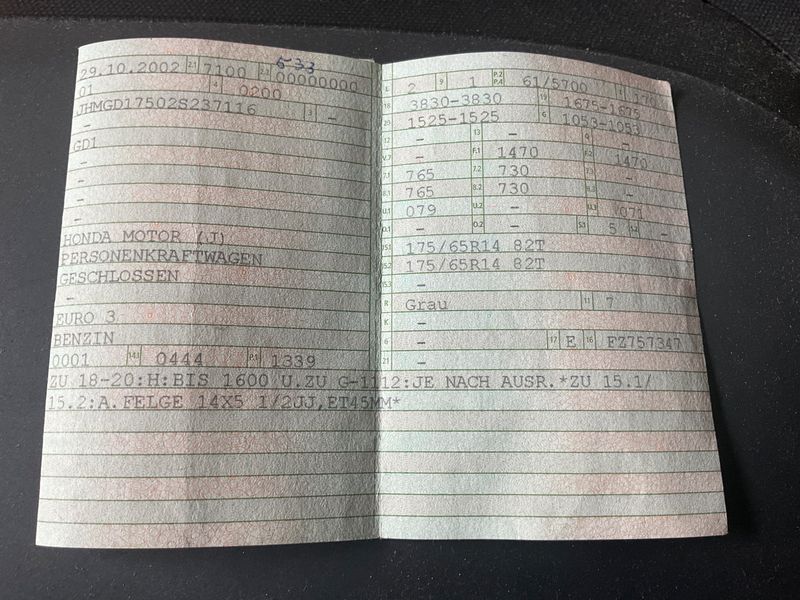 533
29.10.2002 2.1 7100 2.2 00000000
01 4 0200
JHMGD17502S237116 3 -
-
GD1
-
-
-
-
HONDA MOTOR (J)
PERSONENKRAFTWAGEN
GESCHLOSSEN
-
EURO 3
BENZIN
0001 14.1 0444 P.1 1339
L 2 9 1 P.2 P.4 61/5700 T 170
18 3830-3830 19 1675-1675
20 1525-1525 G 1053-1053
12 - 13 - Q -
V.7 - F.1 1470 F.2 1470
7.1 765 7.2 730 7.3 -
8.1 765 8.2 730 8.3 -
U.1 079 U.2 - U.3 071
O.1 - O.2 - S.1 5 S.2 -
15.1 175/65R14 82T
15.2 175/65R14 82T
15.3 -
R Grau 11 7
K -
6 - 17 E 16 FZ757347
21 -
ZU 18-20:H:BIS 1600 U.ZU G-1112:JE NACH AUSR.*ZU 15.1/
15.2:A.FELGE 14X5 1/2JJ,ET45MM*